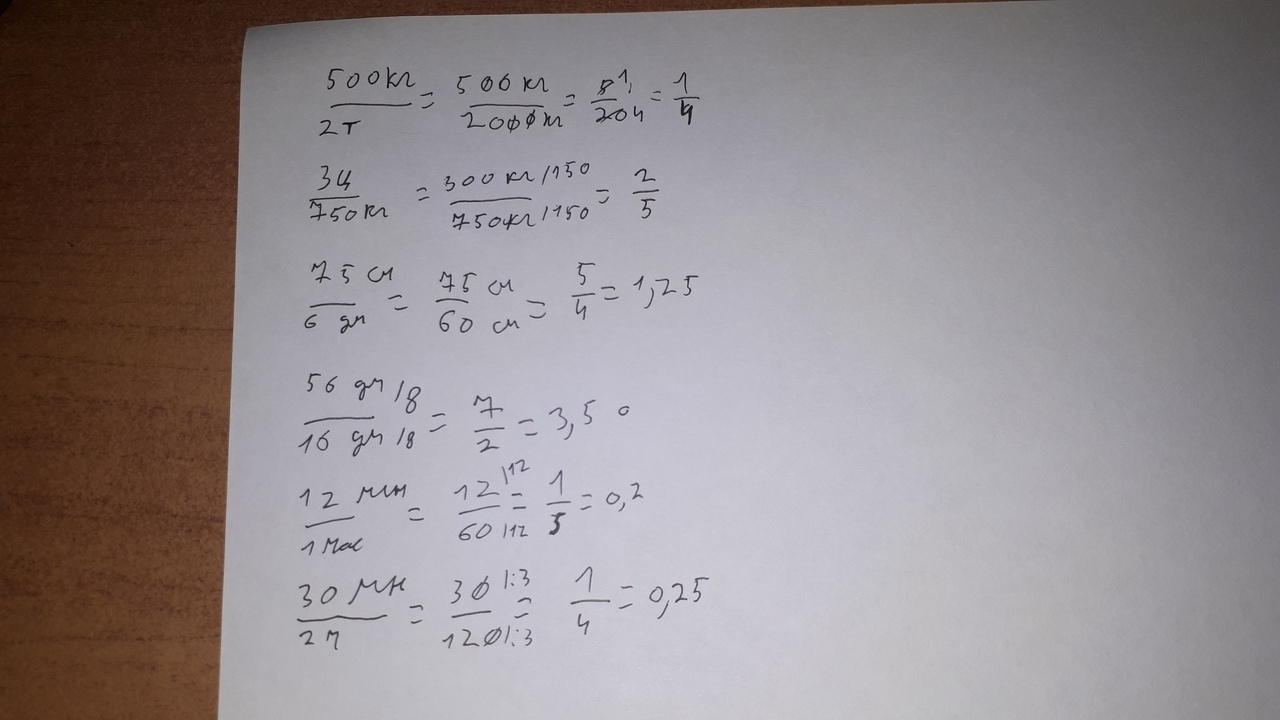 500кг/2т = 500кг/2000кг = 5 1/20 4 = 1/4
3ц/750кг = 300кг/150/750кг/150 = 2/5
75 см/6 дм = 75 см/60 см = 5/4 = 1,25
56 дм /8/16 дм /8 = 7/2 = 3,5
12 мин/1 час = 12 /12/60 /12 = 1/5 = 0,2
30 мин/2ч = 30 |:3/120 |:3 = 1/4 = 0,25